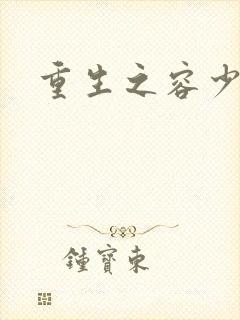 重生之容少
鍾寶東